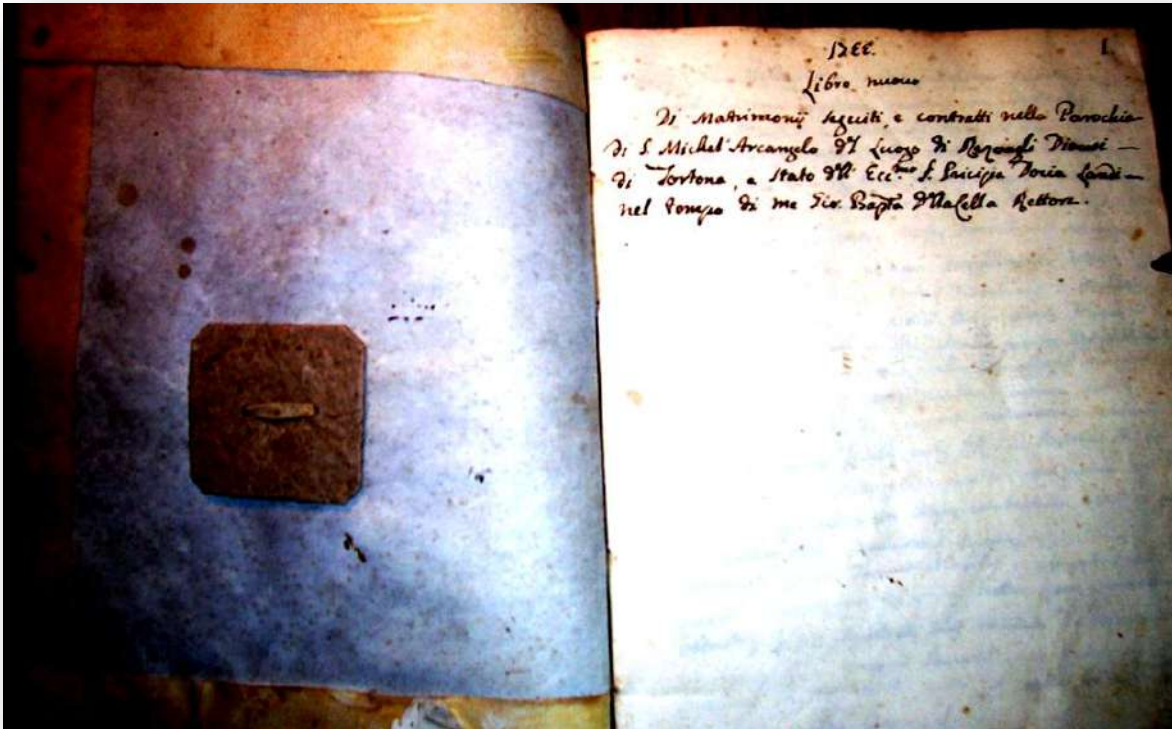 I.
Libro nuovo
Di Matrimonij seguiti, e contratti nella Parochia
di S. Michel'Arcangelo d'l Luogo di
di Tortona, e stato d'll Ecc.mo S. Doria Landi
nel tempo di me Gio. Bapta d'lla Cella Rettore.